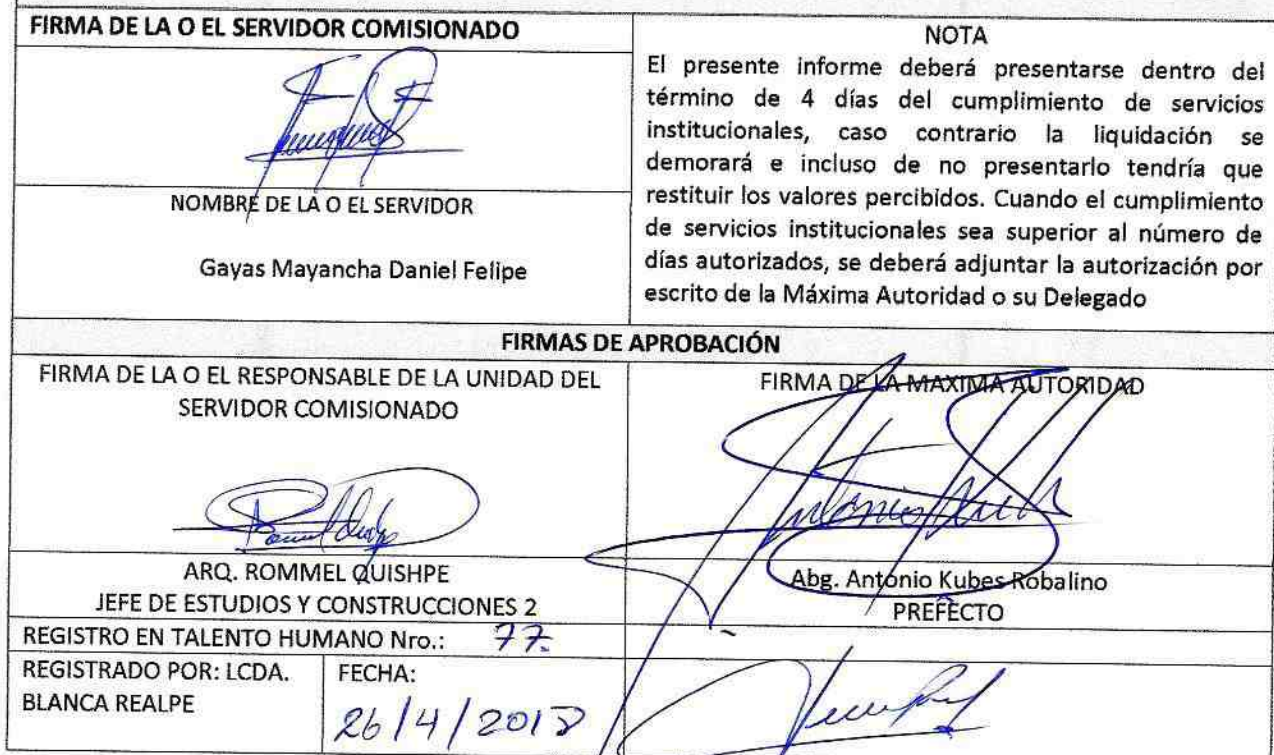 FIRMA DE LA O EL SERVIDOR COMISIONADO
NOMBRE DE LA O EL SERVIDOR
Gayas Mayancha Daniel Felipe
NOTA
El presente informe deberá presentarse dentro del
término de 4 días del cumplimiento de servicios
institucionales, caso contrario la liquidación se
demorará e incluso de no presentarlo tendría que
restituir los valores percibidos. Cuando el cumplimiento
de servicios institucionales sea superior al número de
días autorizados, se deberá adjuntar la autorización por
escrito de la Máxima Autoridad o su Delegado
FIRMAS DE APROBACIÓN
FIRMA DE LA O EL RESPONSABLE DE LA UNIDAD DEL
SERVIDOR COMISIONADO
ARQ. ROMMEL QUISHPE
JEFE DE ESTUDIOS Y CONSTRUCCIONES 2
FIRMA DE LA MAXIMA AUTORIDAD
Abg. Antonio Kubes Robalino
PREFECTO
REGISTRO EN TALENTO HUMANO Nro.: 77
REGISTRADO POR: LCDA.
BLANCA REALPE
FECHA:
26/4/2018